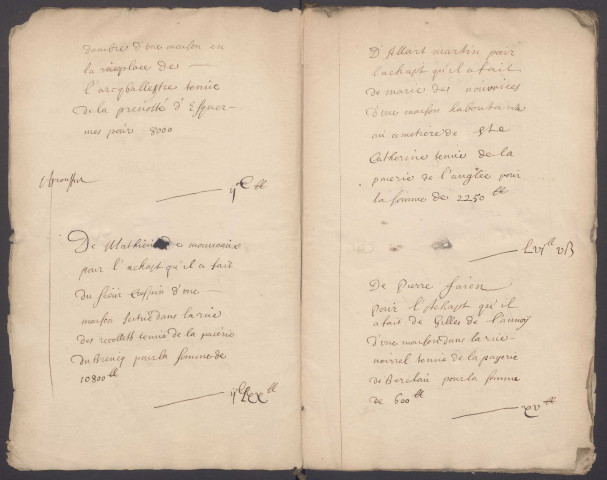 d'une maison en
la rue place de —
l'arcqballestre tenue
de la prevosté d'Esquer-
mes pour 8000
ij C tt
De Mathieu de mouveaux
pour l'achapt qu'il a fait
du sieur Crespin d'une —
maison scitué dans la rue
des recollets tenue de la paierie
du Breucq pour la somme de
10800 tt
ij C lxx tt
D'Allart martin pour
l'achapt qu'il a fait
de marie des
d'une maison haboutante
au cimetiere de Ste
Catherine tenue de la
paierie de l'anglée pour
la somme de 2250 tt
Lvi tt v s
De Pierre farem
pour l'achapt qu'il
a fait de Gilles de l'aunoy
d'une maison dans la rue
tenue de la payerie
de Berclau pour la somme
de 600 tt
xv tt